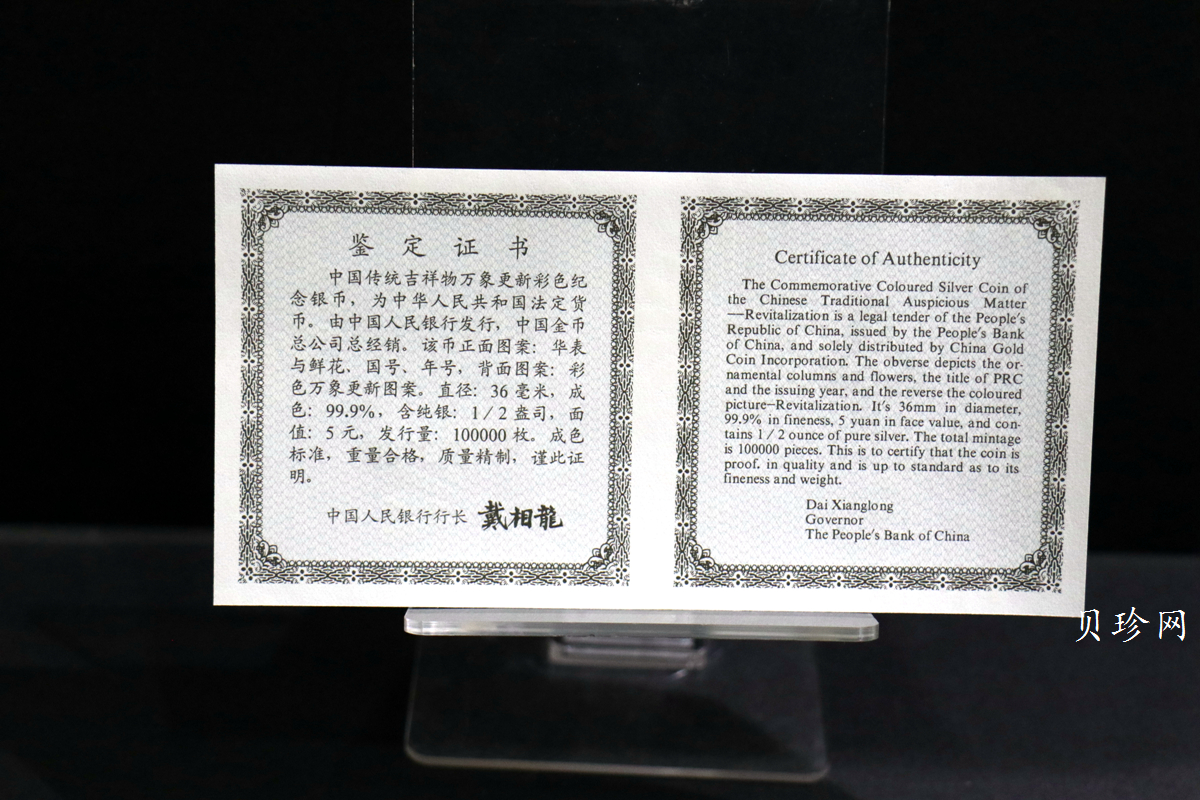 鉴定证书
中国传统吉祥物万象更新彩色纪
念银币，为中华人民共和国法定货
币。由中国人民银行发行，中国金币
总公司总经销。该币正面图案：华表
与鲜花、国号、年号，背面图案：彩
色万象更新图案。直径：36毫米，成
色：99.9%，含纯银：1/2盎司，面
值：5元，发行量：100000枚。成色
标准，重量合格，质量精制，谨此证
明。
中国人民银行行长 戴相龍
Certificate of Authenticity
The Commemorative Coloured Silver Coin of
the Chinese Traditional Auspicious Matter
—Revitalization is a legal tender of the People's
Republic of China, issued by the People's Bank
of China, and solely distributed by China Gold
Coin Incorporation. The obverse depicts the or-
namental columns and flowers, the title of PRC
and the issuing year, and the reverse the coloured
picture—Revitalization. It's 36mm in diameter,
99.9% in fineness, 5 yuan in face value, and con-
tains 1/2 ounce of pure silver. The total mintage
is 100000 pieces. This is to certify that the coin is
proof. in quality and is up to standard as to its
fineness and weight.
Dai Xianglong
Governor
The People's Bank of China
贝珍网